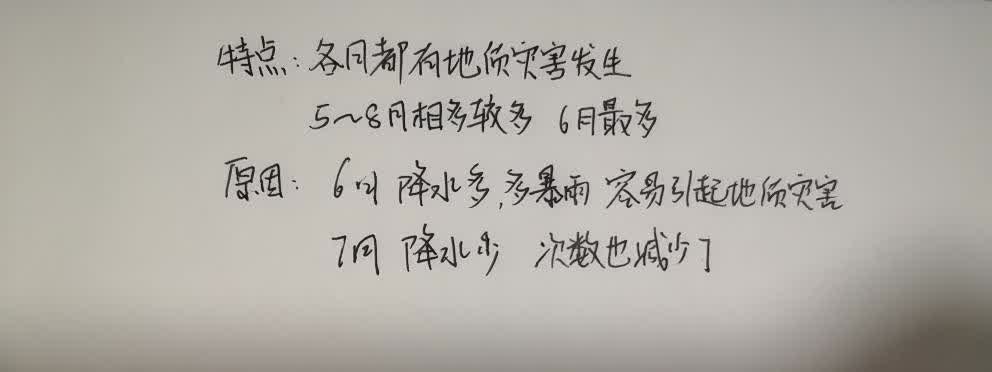 特点：各月都有地质灾害发生
5～8月相多较多 6月最多
原因：6月 降水多，多暴雨 容易引起地质灾害
7月 降水少 次数也减少了